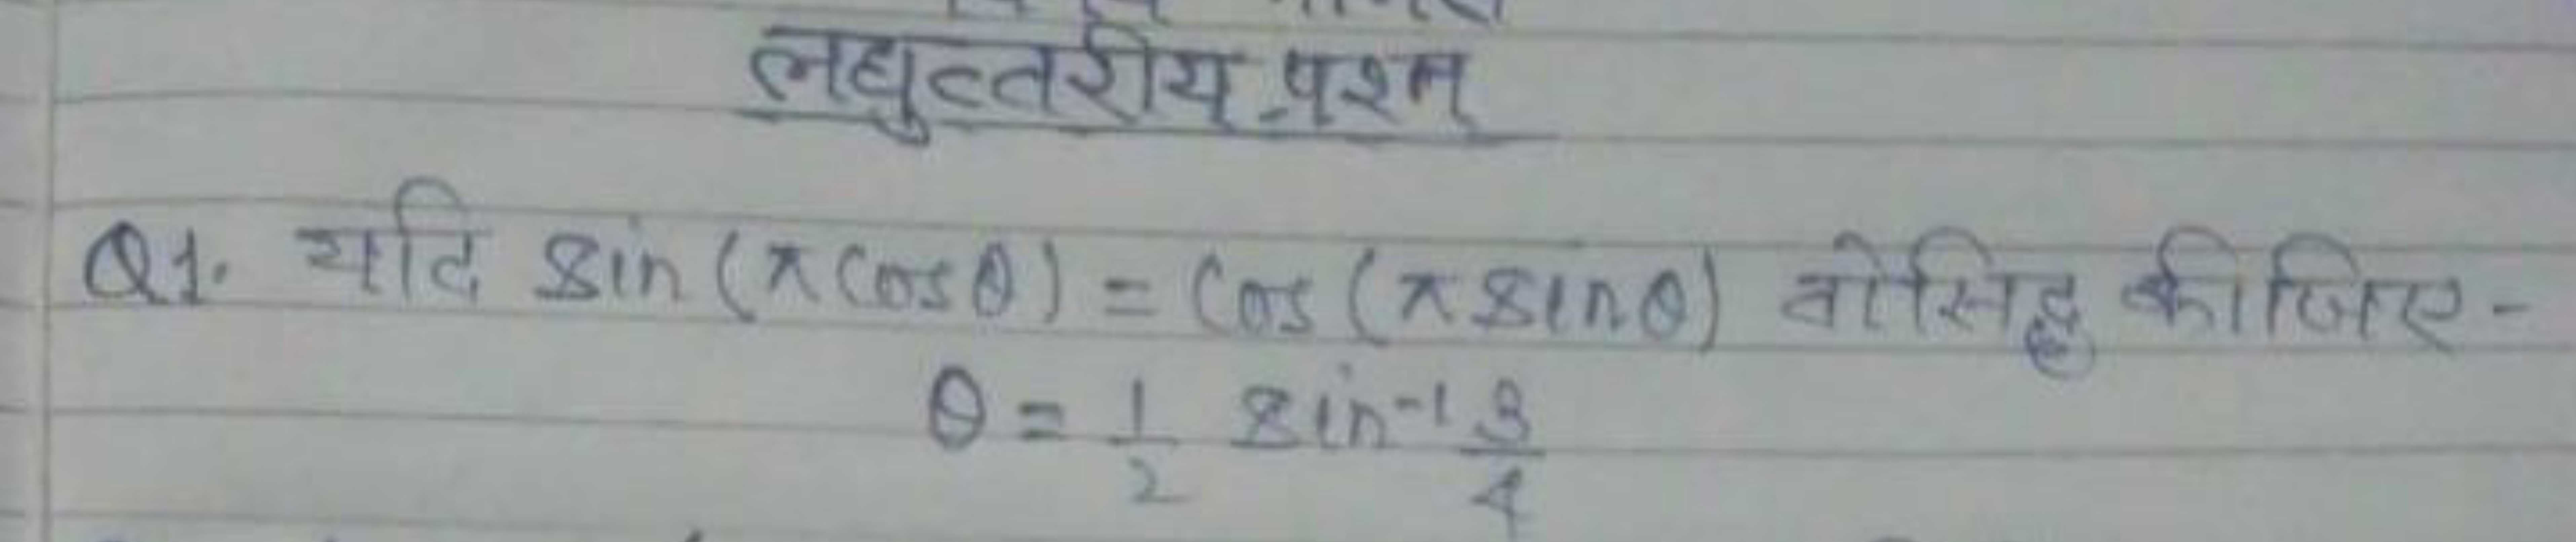 लघुत्तरीय प्रश्न
Q1. यदि sin (π cos θ) = cos (π sin θ) तो सिद्ध कीजिए -
θ = 1/2 sin⁻¹ 3/4